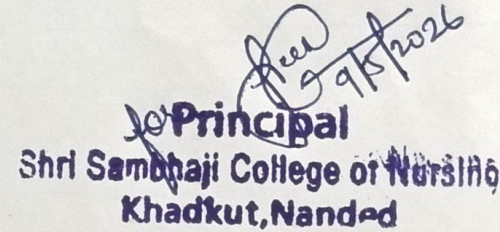 9/5/2026
for Principal
Shri Sambhaji College of Nursing
Khadkut, Nanded